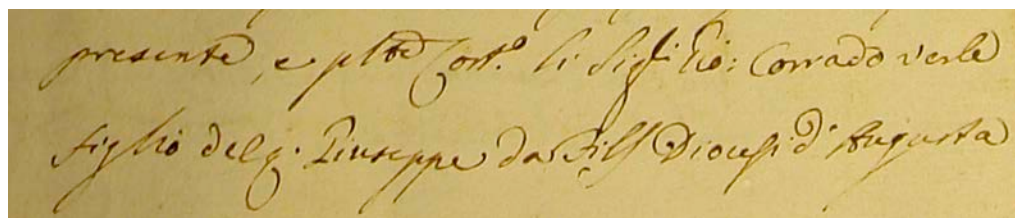 presente, e pltē Cost.º li Sigſi Gio: Corrado Verle
figlio del q. Giuseppe da Fils Diocesi d'Augusta